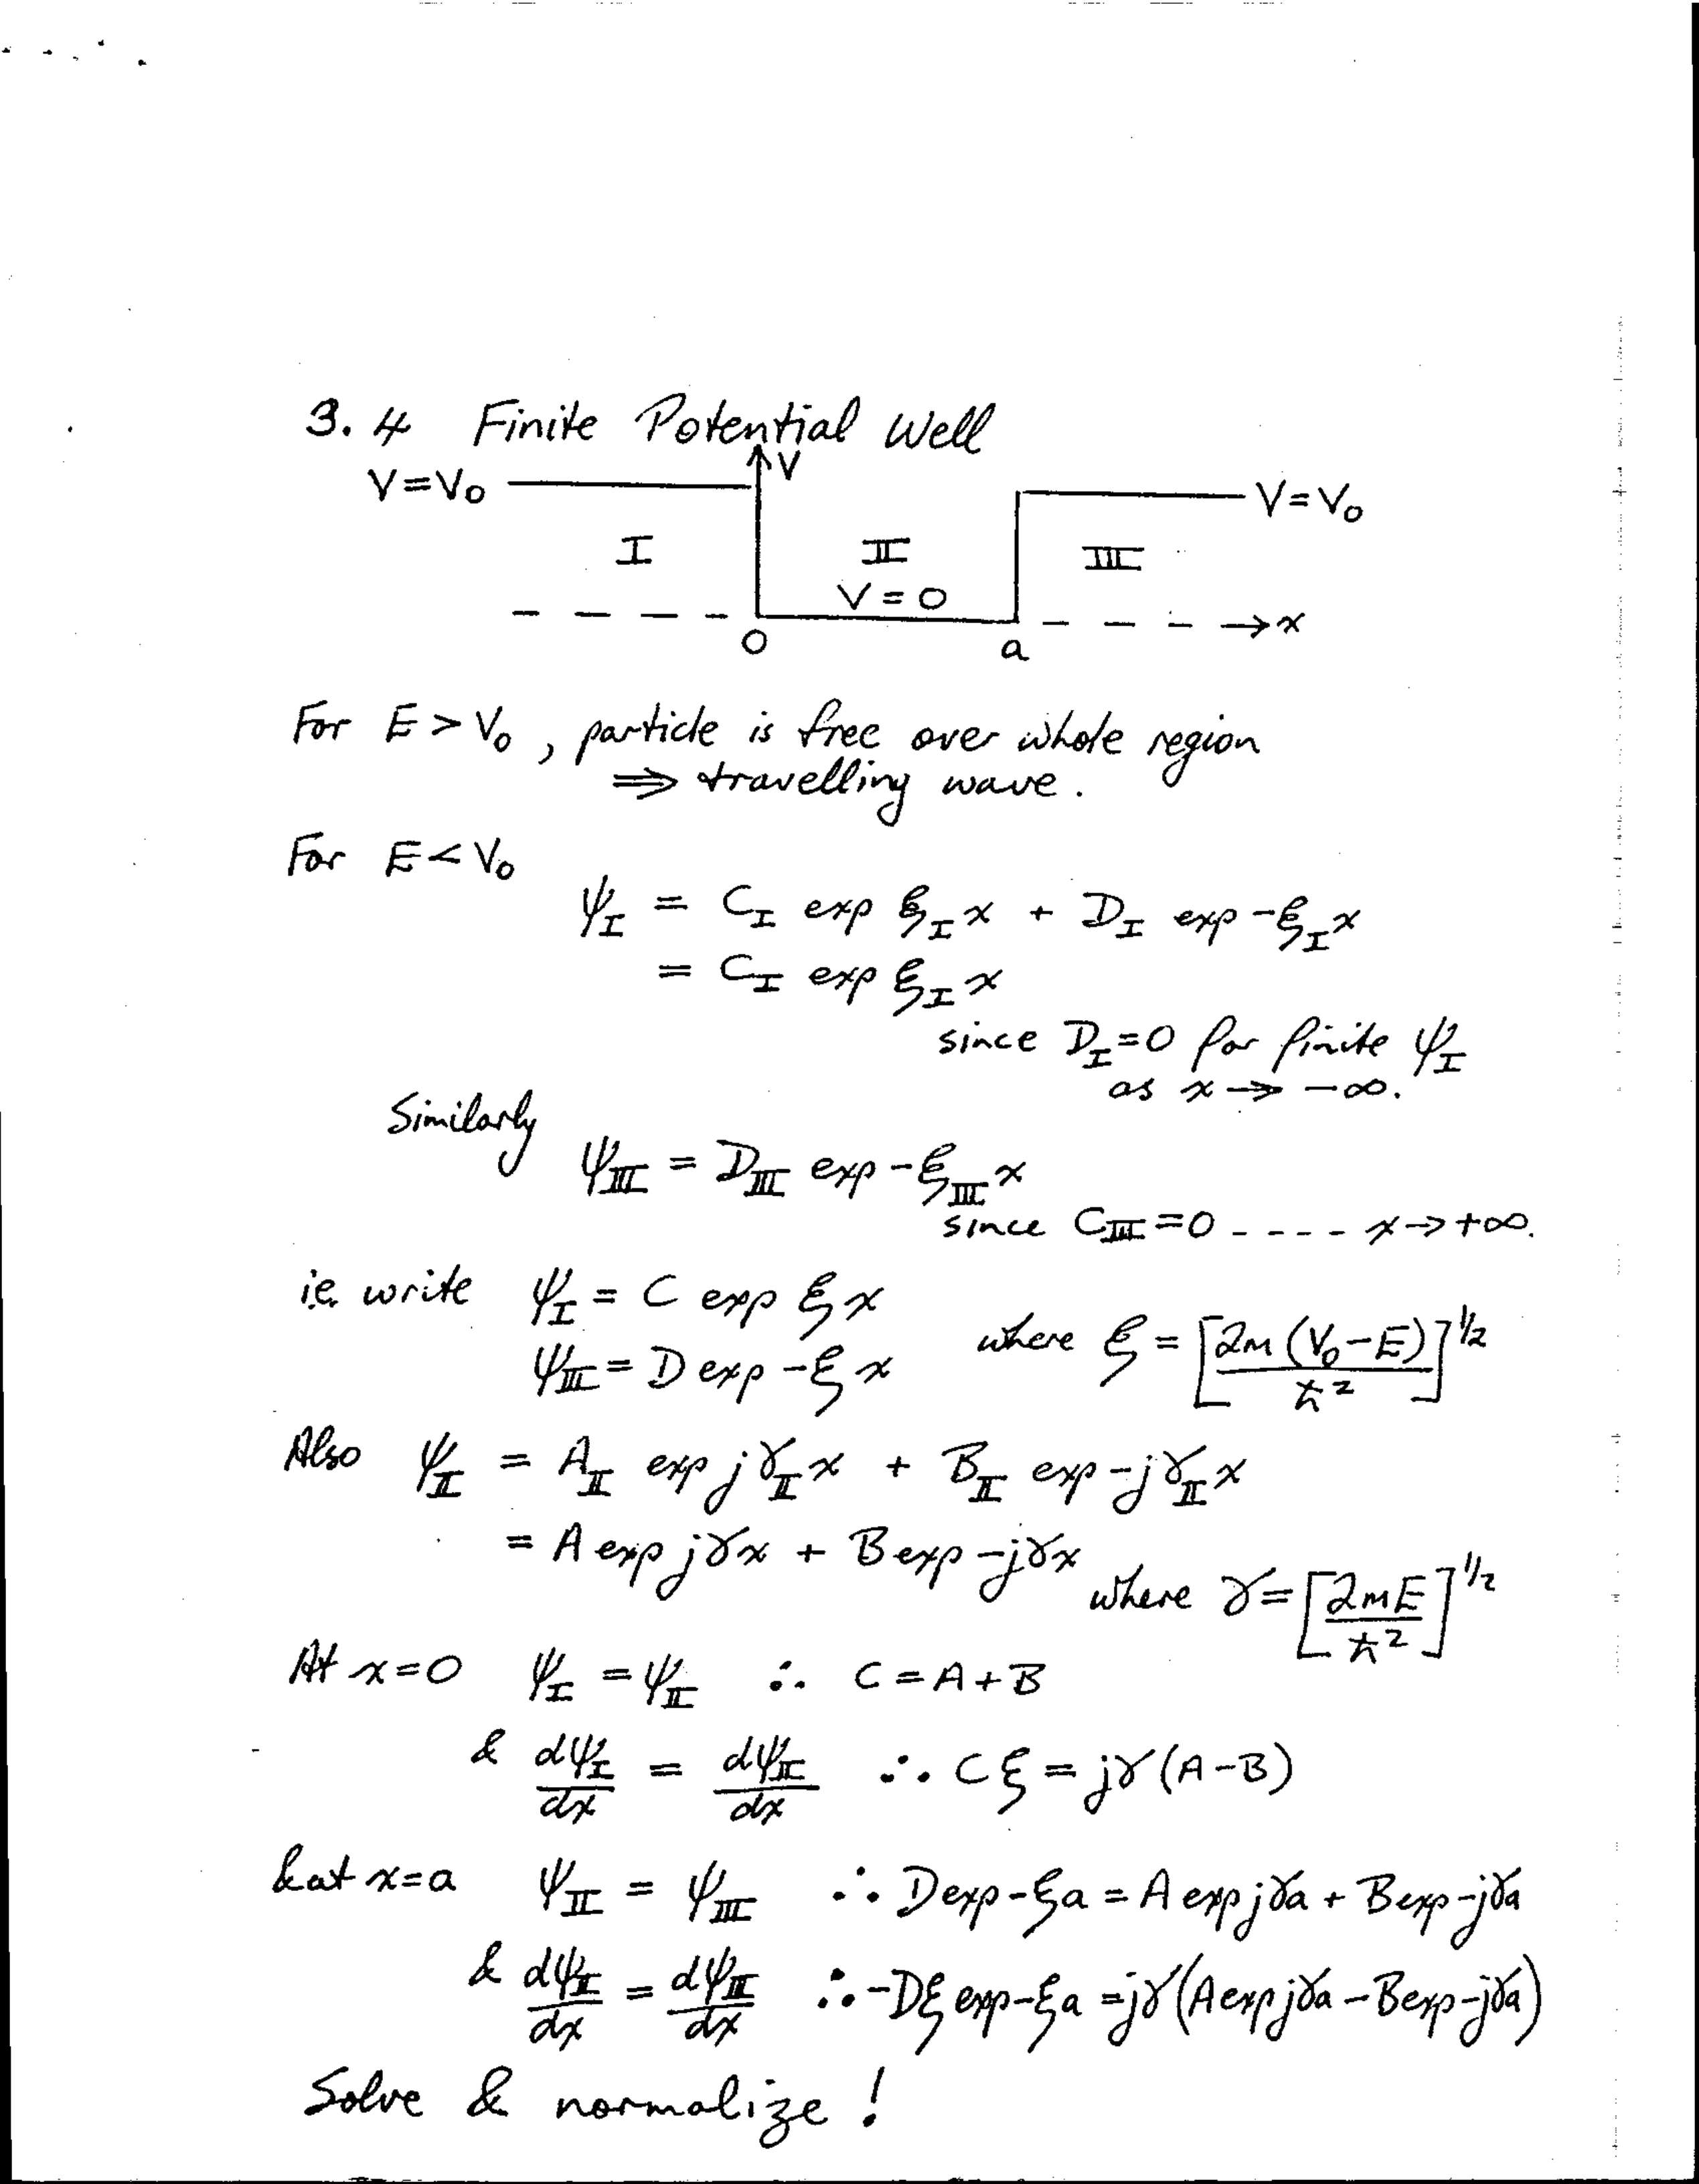 3.4 Finite Potential Well
V=V₀
V
V=V₀
I
II
III
V=0
x
0
a
For E > V₀, particle is free over whole region
⇒ travelling wave.
For E < V₀
ψ_I = C_I exp ξ_I x + D_I exp -ξ_I x
= C_I exp ξ_I x
since D_I=0 for finite ψ_I
as x → -∞.
Similarly
ψ_III = D_III exp -ξ_III x
since C_III=0 ---- x→+∞.
i.e. write ψ_I = C exp ξ x
ψ_III = D exp -ξ x where ξ = [2m(V₀-E)/ℏ²]^1/2
Also ψ_II = A_II exp jγ_II x + B_II exp -jγ_II x
= A exp jγx + B exp -jγx
where γ = [2mE/ℏ²]^1/2
At x=0 ψ_I = ψ_II ∴ C = A+B
& dψ_I/dx = dψ_II/dx ∴ Cξ = jγ(A-B)
& at x=a ψ_II = ψ_III ∴ D exp -ξa = A exp jγa + B exp -jγa
& dψ_II/dx = dψ_III/dx ∴ -Dξ exp -ξa = jγ(A exp jγa - B exp -jγa)
Solve & normalize !